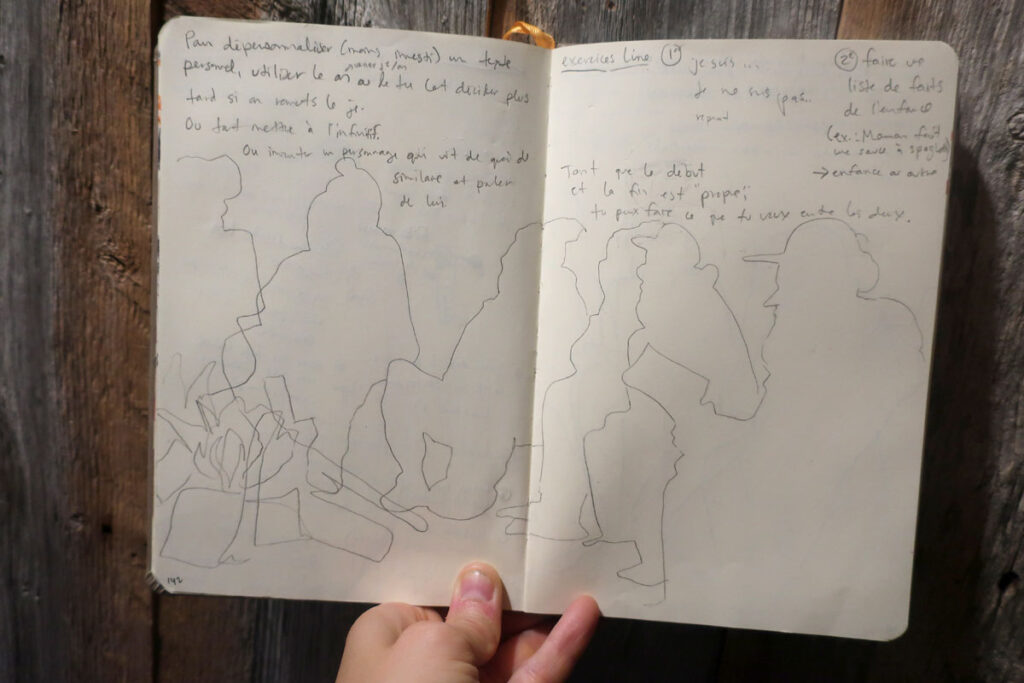 Pour dépersonnaliser (moins investi) un texte
personnel, utiliser le on ou le tu (et décider plus
tard si on remets le je.
Ou tout mettre à l'infinitif.
Ou inventer un personnage qui vit de quoi de
similaire et parler
de lui.
142
exercices Line 1°
je suis ...
je ne suis pas...
repeat
2° faire une
liste de faits
de l'enfance
(ex.: Maman fait
une sauce à spaghetti
→ enfance ou autre
Tant que le début
et la fin est "propre",
tu peux faire ce que tu veux entre les deux.